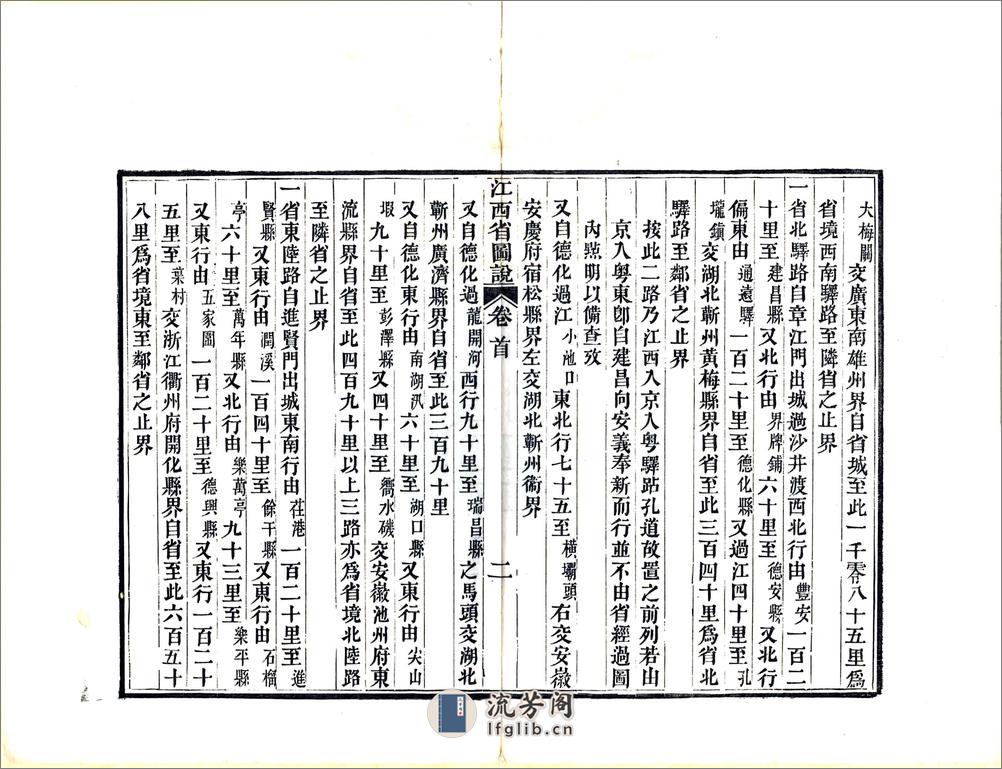 大梅關交廣東南雄州界自省城至此一千零八十五里爲
省境西南驛路至隣省之止界
一省北驛路自章江門出城過沙井渡西北行由豐安一百二
十里至建昌縣又北行由界牌鋪六十里至德安縣又北行
偏東由通遠驛一百二十里至德化縣又過江四十里至孔
壠鎭交湖北蘄州黃梅縣界自省至此三百四十里爲省北
驛路至鄰省之止界
按此二路乃江西入京入粤驛跕孔道故置之前列若由
京入粤東卽自建昌向安義奉新而行並不由省經過圖
內㸃明以備查攷
又自德化過江小池口東北行七十五至橫壩頭右交安徽
安慶府宿松縣界左交湖北蘄州衞界
江西省圖說
卷首
二
又自德化過龍開河西行九十里至瑞昌縣之馬頭交湖北
蘄州廣濟縣界自省至此三百九十里
又自德化東行由南湖汛六十里至湖口縣又東行由尖山
堰九十里至彭澤縣又四十里至嚮水磯交安徽池州府東
流縣界自省至此四百九十里以上三路亦爲省境北陸路
至隣省之止界
一省東陸路自進賢門出城東南行由茌港一百二十里至進
賢縣又東行由潤溪一百四十里至餘干縣又東行由石橊
亭六十里至萬年縣又北行由樂萬亭九十三里至樂平縣
又東行由五家圖一百二十里至德興縣又東行一百二十
五里至葉村交浙江衢州府開化縣界自省至此六百五十
八里爲省境東至鄰省之止界
流芳阁
lfglib.cn